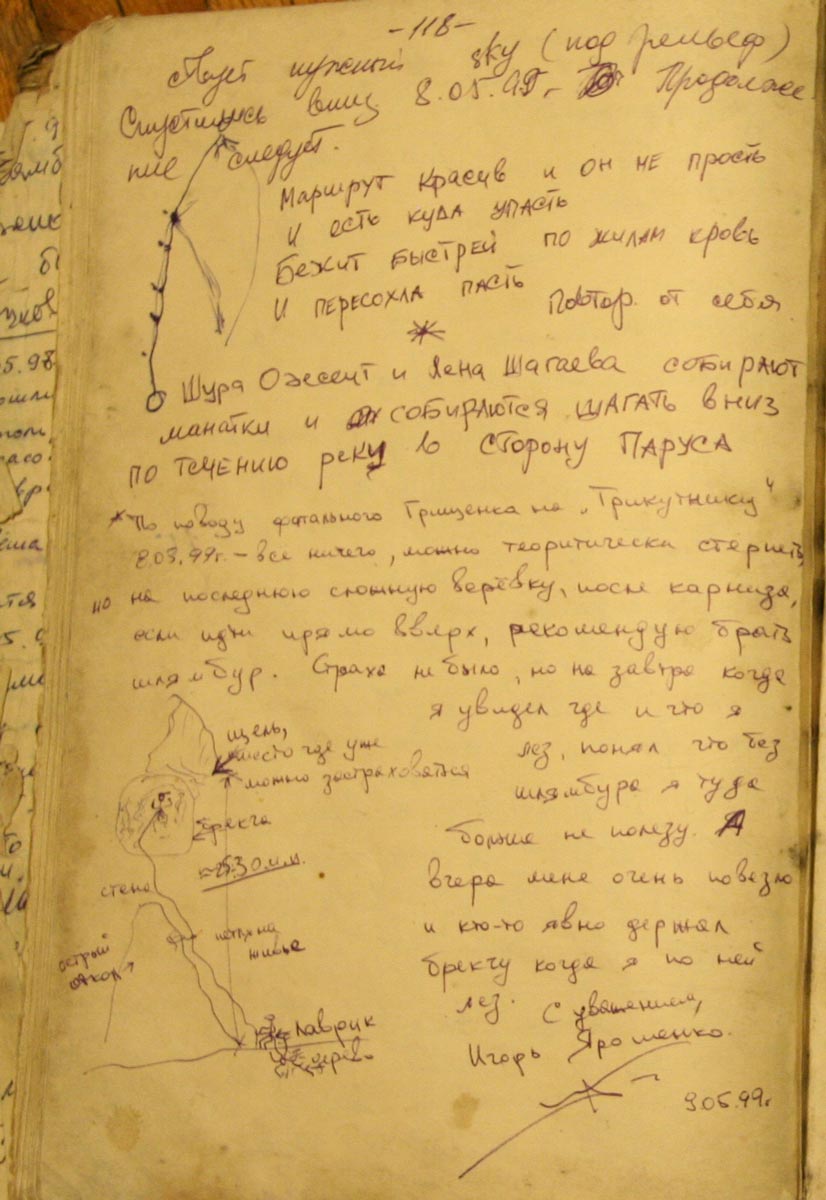 -118-
sky (под рельеф)
Спустились вниз 8.05.99г. Продолже-
ние следует.
Маршрут красив и он не прость
И есть куда упасть
Бежит быстрей по жилам кровь
И пересохла пасть
Повтор. от себя
Шура и Лена Шагаева собирают
манатки и собираются шагать вниз
по течению реки в сторону Паруса
* По поводу фотального Грищенка на „Трикутнику"
99г. – все ничего, можно теоритически стерпеть,
но на последнюю сложную верёвку, после карниза,
если идти прямо вверх, рекомендую брать
шлямбур. Страха не было, но на завтра когда
я увидел где и что я
лез, понял что без
шлямбура я туда
больше не полезу. А
вчера мене очень повезло
и кто-то явно держал
брекчу когда я по ней
лез. С уважением,
Игорь Ярошенко.
9.05.99г
щель,
место где уже
можно застраховаться
брекча
стена
острый
откол
петля на
Лаврик
дерево